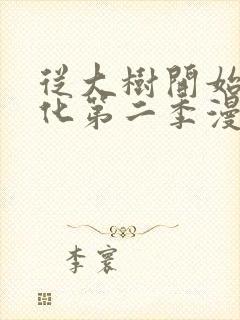 從大樹開始
化第二季漫
李寰